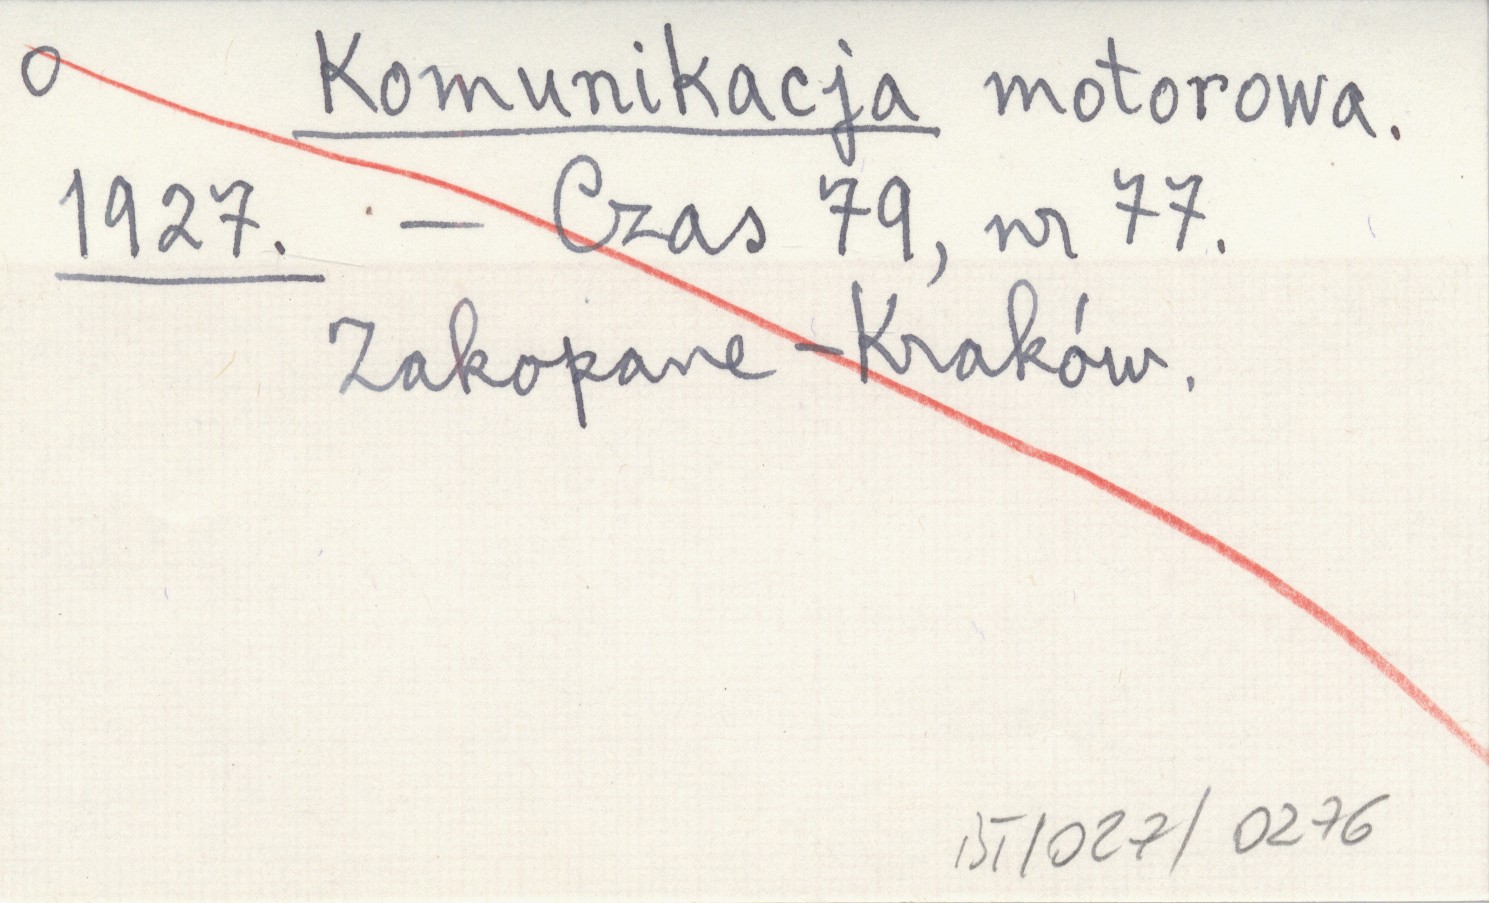 O Komunikacja motorowa.
1927. — Czas 79, nr 77.
Zakopane - Kraków.
BT/027/0276